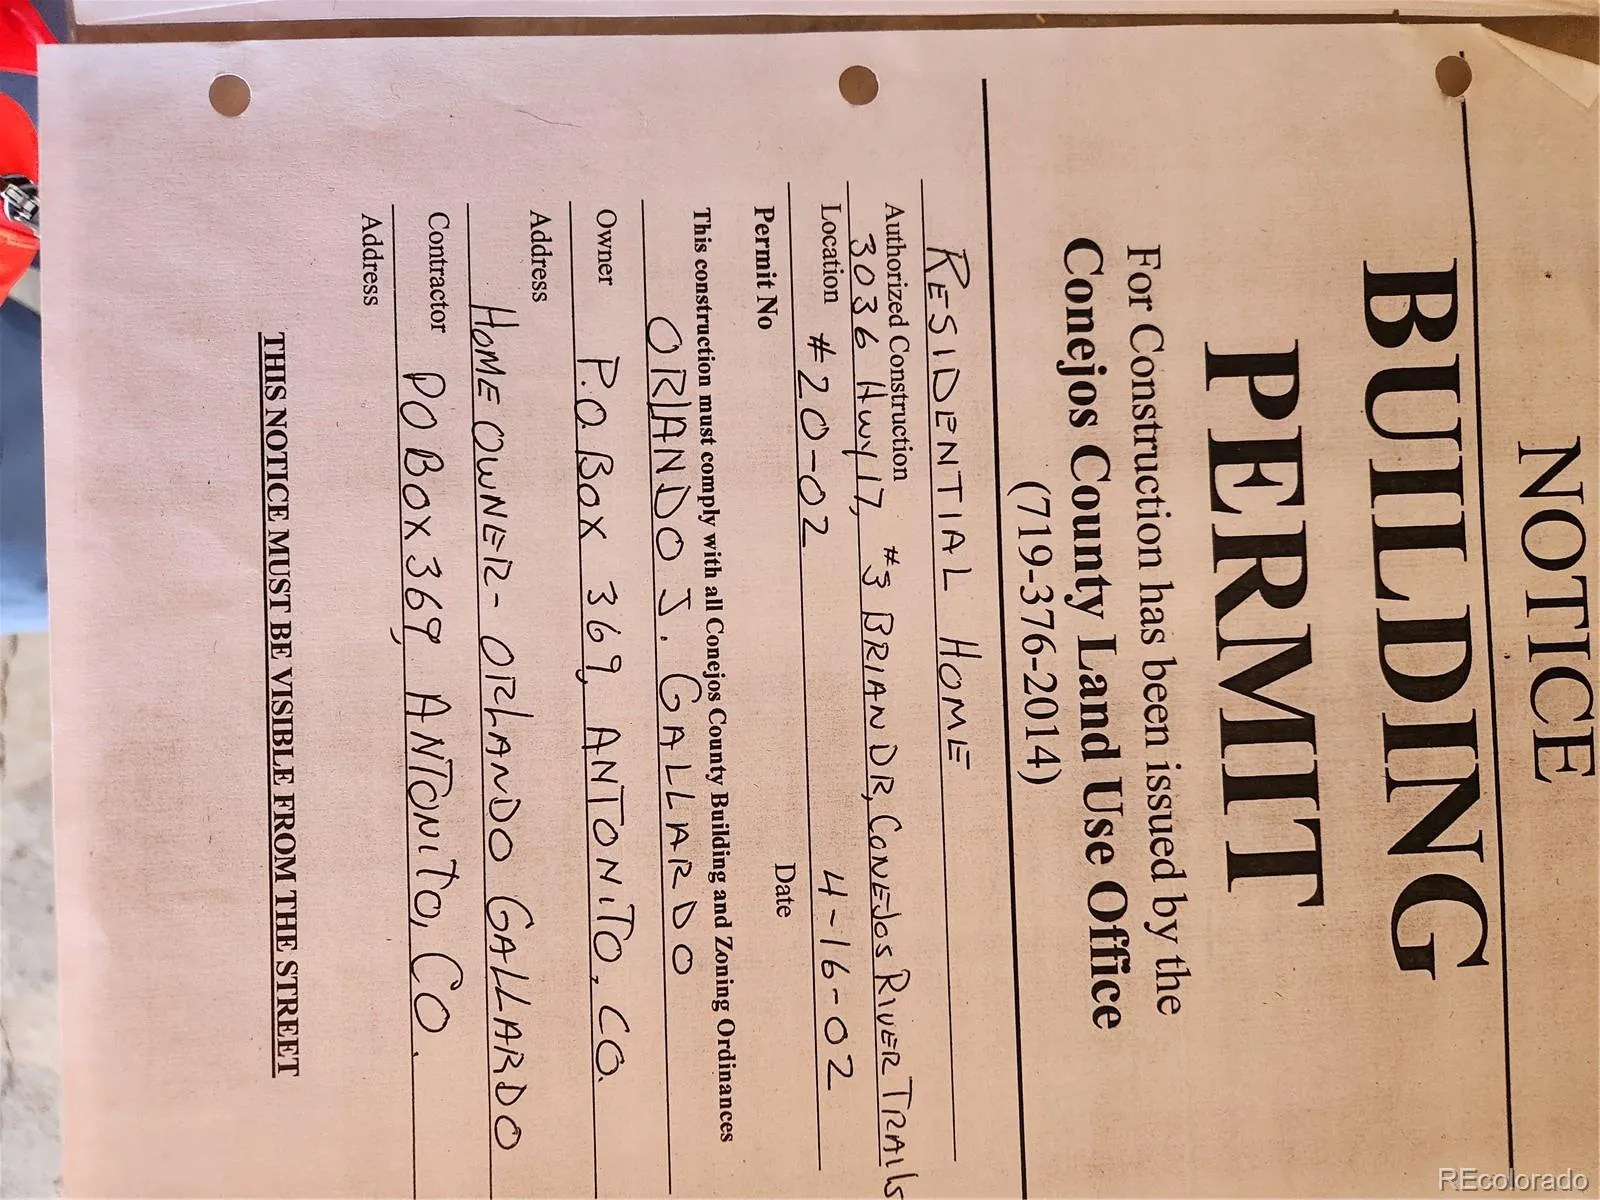 NOTICE
BUILDING
PERMIT
For Construction has been issued by the
Conejos County Land Use Office
(719-376-2014)
RESIDENTIAL HOME
Authorized Construction
3036 Hwy 17, #3 BRIAN DR, CONEJOS RIVER TRAILS
Location #20-02 4-16-02
Permit No Date
This construction must comply with all Conejos County Building and Zoning Ordinances
ORLANDO J. GALLARDO
Owner P.O. BOX 369, ANTONITO, CO.
Address
HOMEOWNER - ORLANDO GALLARDO
Contractor PO BOX 369, ANTONITO, CO.
Address
THIS NOTICE MUST BE VISIBLE FROM THE STREET
REcolorado